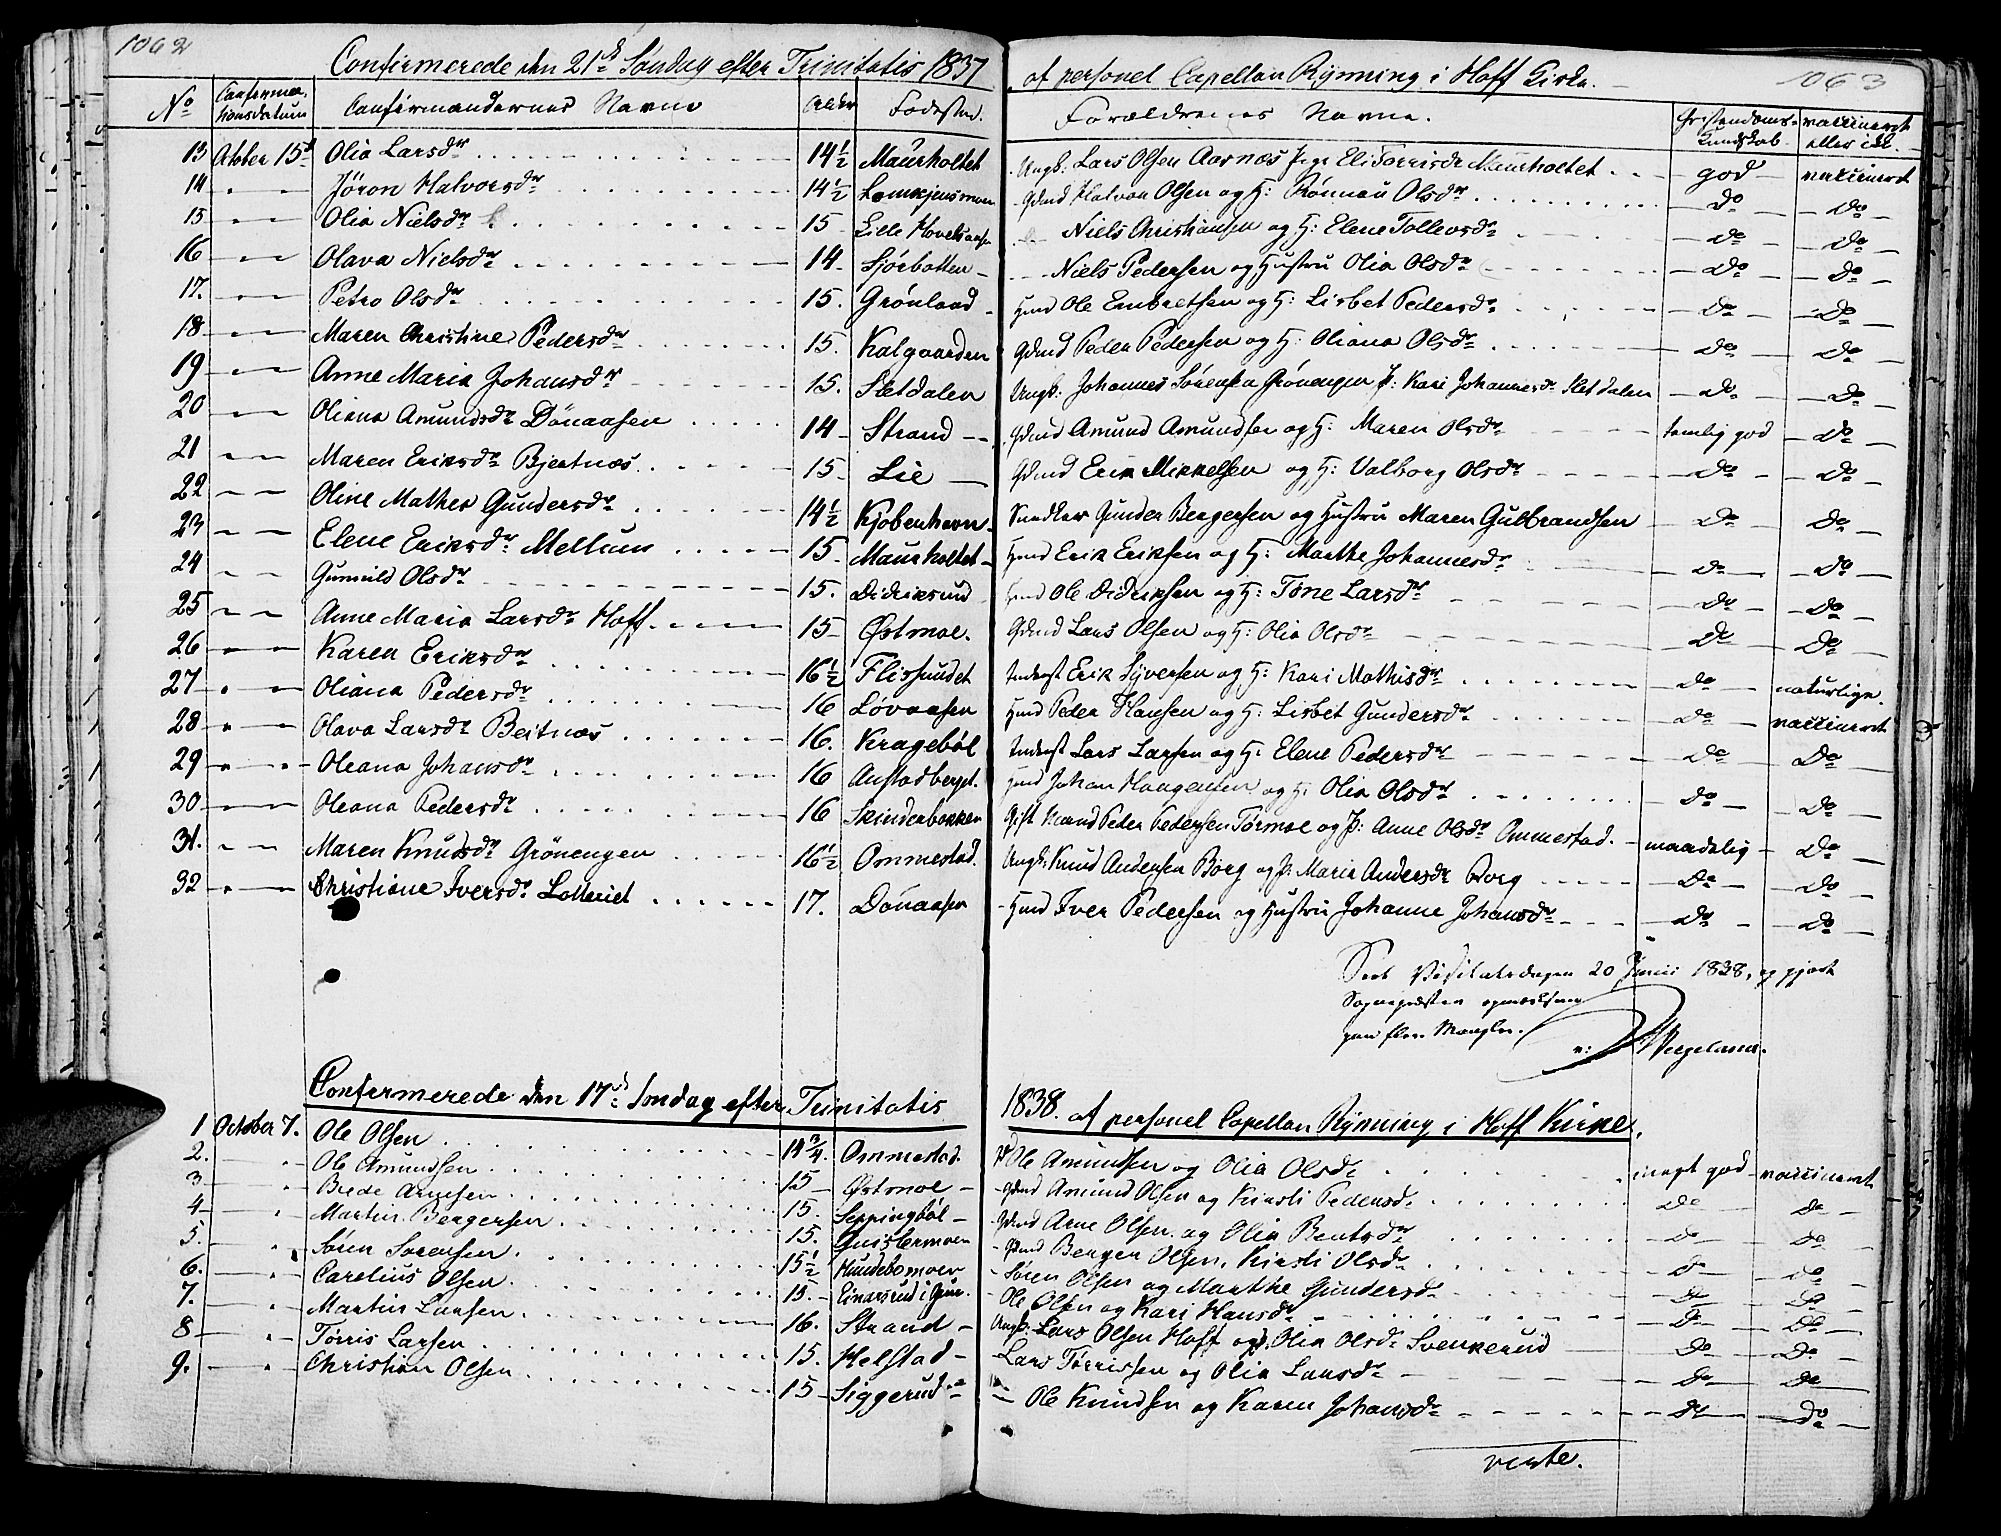 1062
Confirmerede den 21de Søndag efter Trinitatis 1837 af personel Capellan Rynning i Hoff Kirke.
1063
No Confirmationsdatum Confirmandernes Navne Alder Fødested. Forældrenes Navne. Christendoms-Kundskab vaccineret eller ikke
13 October 15de Olia Larsdr 14½ Maurholtet Ungk: Lars Olsen Aasnæs Pige Eli Torrisdr Maurholtet god vaccineret
14 " " Jøron Halvorsdr 14½ Lamkjensmoen Gdmd Halvor Olsen og H: Rønnau Olsdr Do Do
15 " " Olia Nielsdr 15 Lille Hovelsaasen Niels Christiansen og H: Elene Tollevsdr Do Do
16 " " Olava Nielsdr 14 Sjørbotten Niels Pedersen og Hustru Olia Olsdr Do Do
17. " " Petro Olsdr 15. Grønland Hmd Ole Embretsen og H: Lisbet Pedersdr Do Do
18 " " Maren Christine Pedersdr 15. Kalgaarden Gdmd Peder Pedersen og H: Oliana Olsdr Do Do
19 " " Anne Maria Johansdr 15. Sletdalen Ungk: Johannes Sørensen Grønengen P: Kari Johannesdr Sletdalen Do Do
20 " " Oliana Amundsdr Dønaasen 14 Strand Gdmd Amund Amundsen og H: Maren Olsdr temlig god Do
21 " " Maren Eriksdr Bjertnæs 15 Lie Gdmd Erik Mikkelsen og H: Valborg Olsdr Do Do
22 " " Oline Mathea Gundersdr 14½ Kjøbenhavn Snedker Gunder Bergersen og Hustru Maren Gulbrandsen Do Do
23 " " Elene Eriksdr Mellum 15 Maurholtet Hmd Erik Eriksen og H: Marthe Johannesdr Do Do
24 " " Gunnild Olsdr 15. Didriksrud Hmd Ole Didriksen og H: Tone Larsdr Do Do
25 " " Anne Maria Larsdr Hoff 15 Østmoe. Gdmd Lars Olsen og H: Olia Olsdr Do Do
26 " " Karen Eriksdr 16½ Flissundet Inderst Erik Syversen og H: Kari Mathisdr Do naturlige.
27 " " Oliana Pedersdr 16 Løvaasen Hmd Peder Hansen og H: Lisbet Gundersdr Do vaccineret
28 " " Olava Larsdr Beitnæs 16. Kragebøl Inderst Lars Larsen og H: Elene Pedersdr Do Do
29 " " Oleana Johansdr 16 Austadberget. Hmd Johan Haagensen og H: Olia Olsdr Do Do
30 " " Oleana Pedersdr 16 Skinderbakken Gift Mand Peder Pedersen Tørmoe og P: Anne Olsdr Ommestad. maadelig Do
31. " " Maren Knudsdr Grønengen 16½ Ommestad. Ungk: Knud Andersen Borg og P: Maria Andersdr Borg Do Do
32 " " Christiane Iversdr Lotteriet 17. Dønaasen Hmd Iver Pedersen og Hustru Johanne Johansdr Do Do
Seet Visitatsdagen 20 Junii 1838, og gjort
Sognepræsten opmærksom
paa flere Mangler.
N: Wergeland.
Confirmerede den 17de Søndag efter Trinitatis 1838. af personel Capellan Rynning i Hoff Kirke.
1 October 7. Ole Olsen 14¾. Ommestad. Ole Amundsen og Olia Olsdr meget god vaccineret
2. " Ole Amundsen 15 Østmoe Gdmd Amund Olsen og Kirsti Pedersdr Do Do
3 " Brede Arnesen 15. Seppingbøl Gdmd Arne Olsen og Olia Berntsdr Do Do
4 " Martin Bergersen 15. Guistermoen Gdmd Berger Olsen, Kirsti Olsdr Do Do
5. " Søren Sørensen. 15½ Hundebomoen Søren Olsen og Marthe Gundersdr Do Do
6. " Carelius Olsen 15. Einarsrud i Grue. Ole Olsen og Kari Hansdr Do Do
7. " Martin Larsen 16. Strand Ungk: Lars Olsen Hoff og P. Olia Olsdr Svenkerud Do Do
8 " Tørris Larsen 15. Helstad Lars Tørrissen og Olia Larsdr Do Do
9. " Christian Olsen 15 Siggerud Ole Knudsen og Karen Johansdr Do Do
verte.